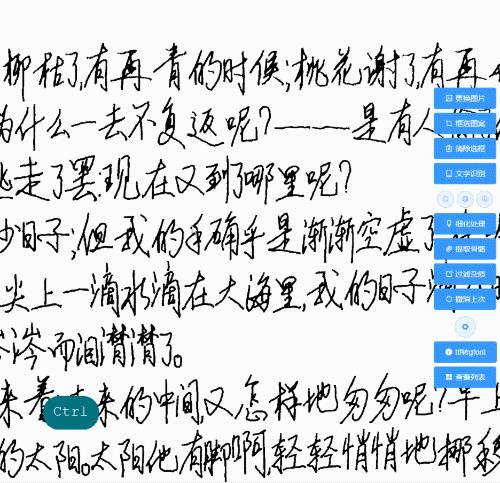 柳枯了,有再青的时候;桃花谢了,有再
为什么一去不复返呢?——是有人
逃走了罢:现在又到了哪里呢?
少日子;但我的手确乎是渐渐空虚了
尖上一滴水滴在大海里,我的日子滴
涔涔而泪潸潸了。
来着 来的中间,又怎样地匆匆呢?早上
的太阳。太阳他有脚啊,轻轻悄悄地挪移
Ctrl
更换图片
框选图案
清除选框
文字识别
细化处理
提取骨骼
过滤杂质
撤消上次
ttf转gfont
查看列表